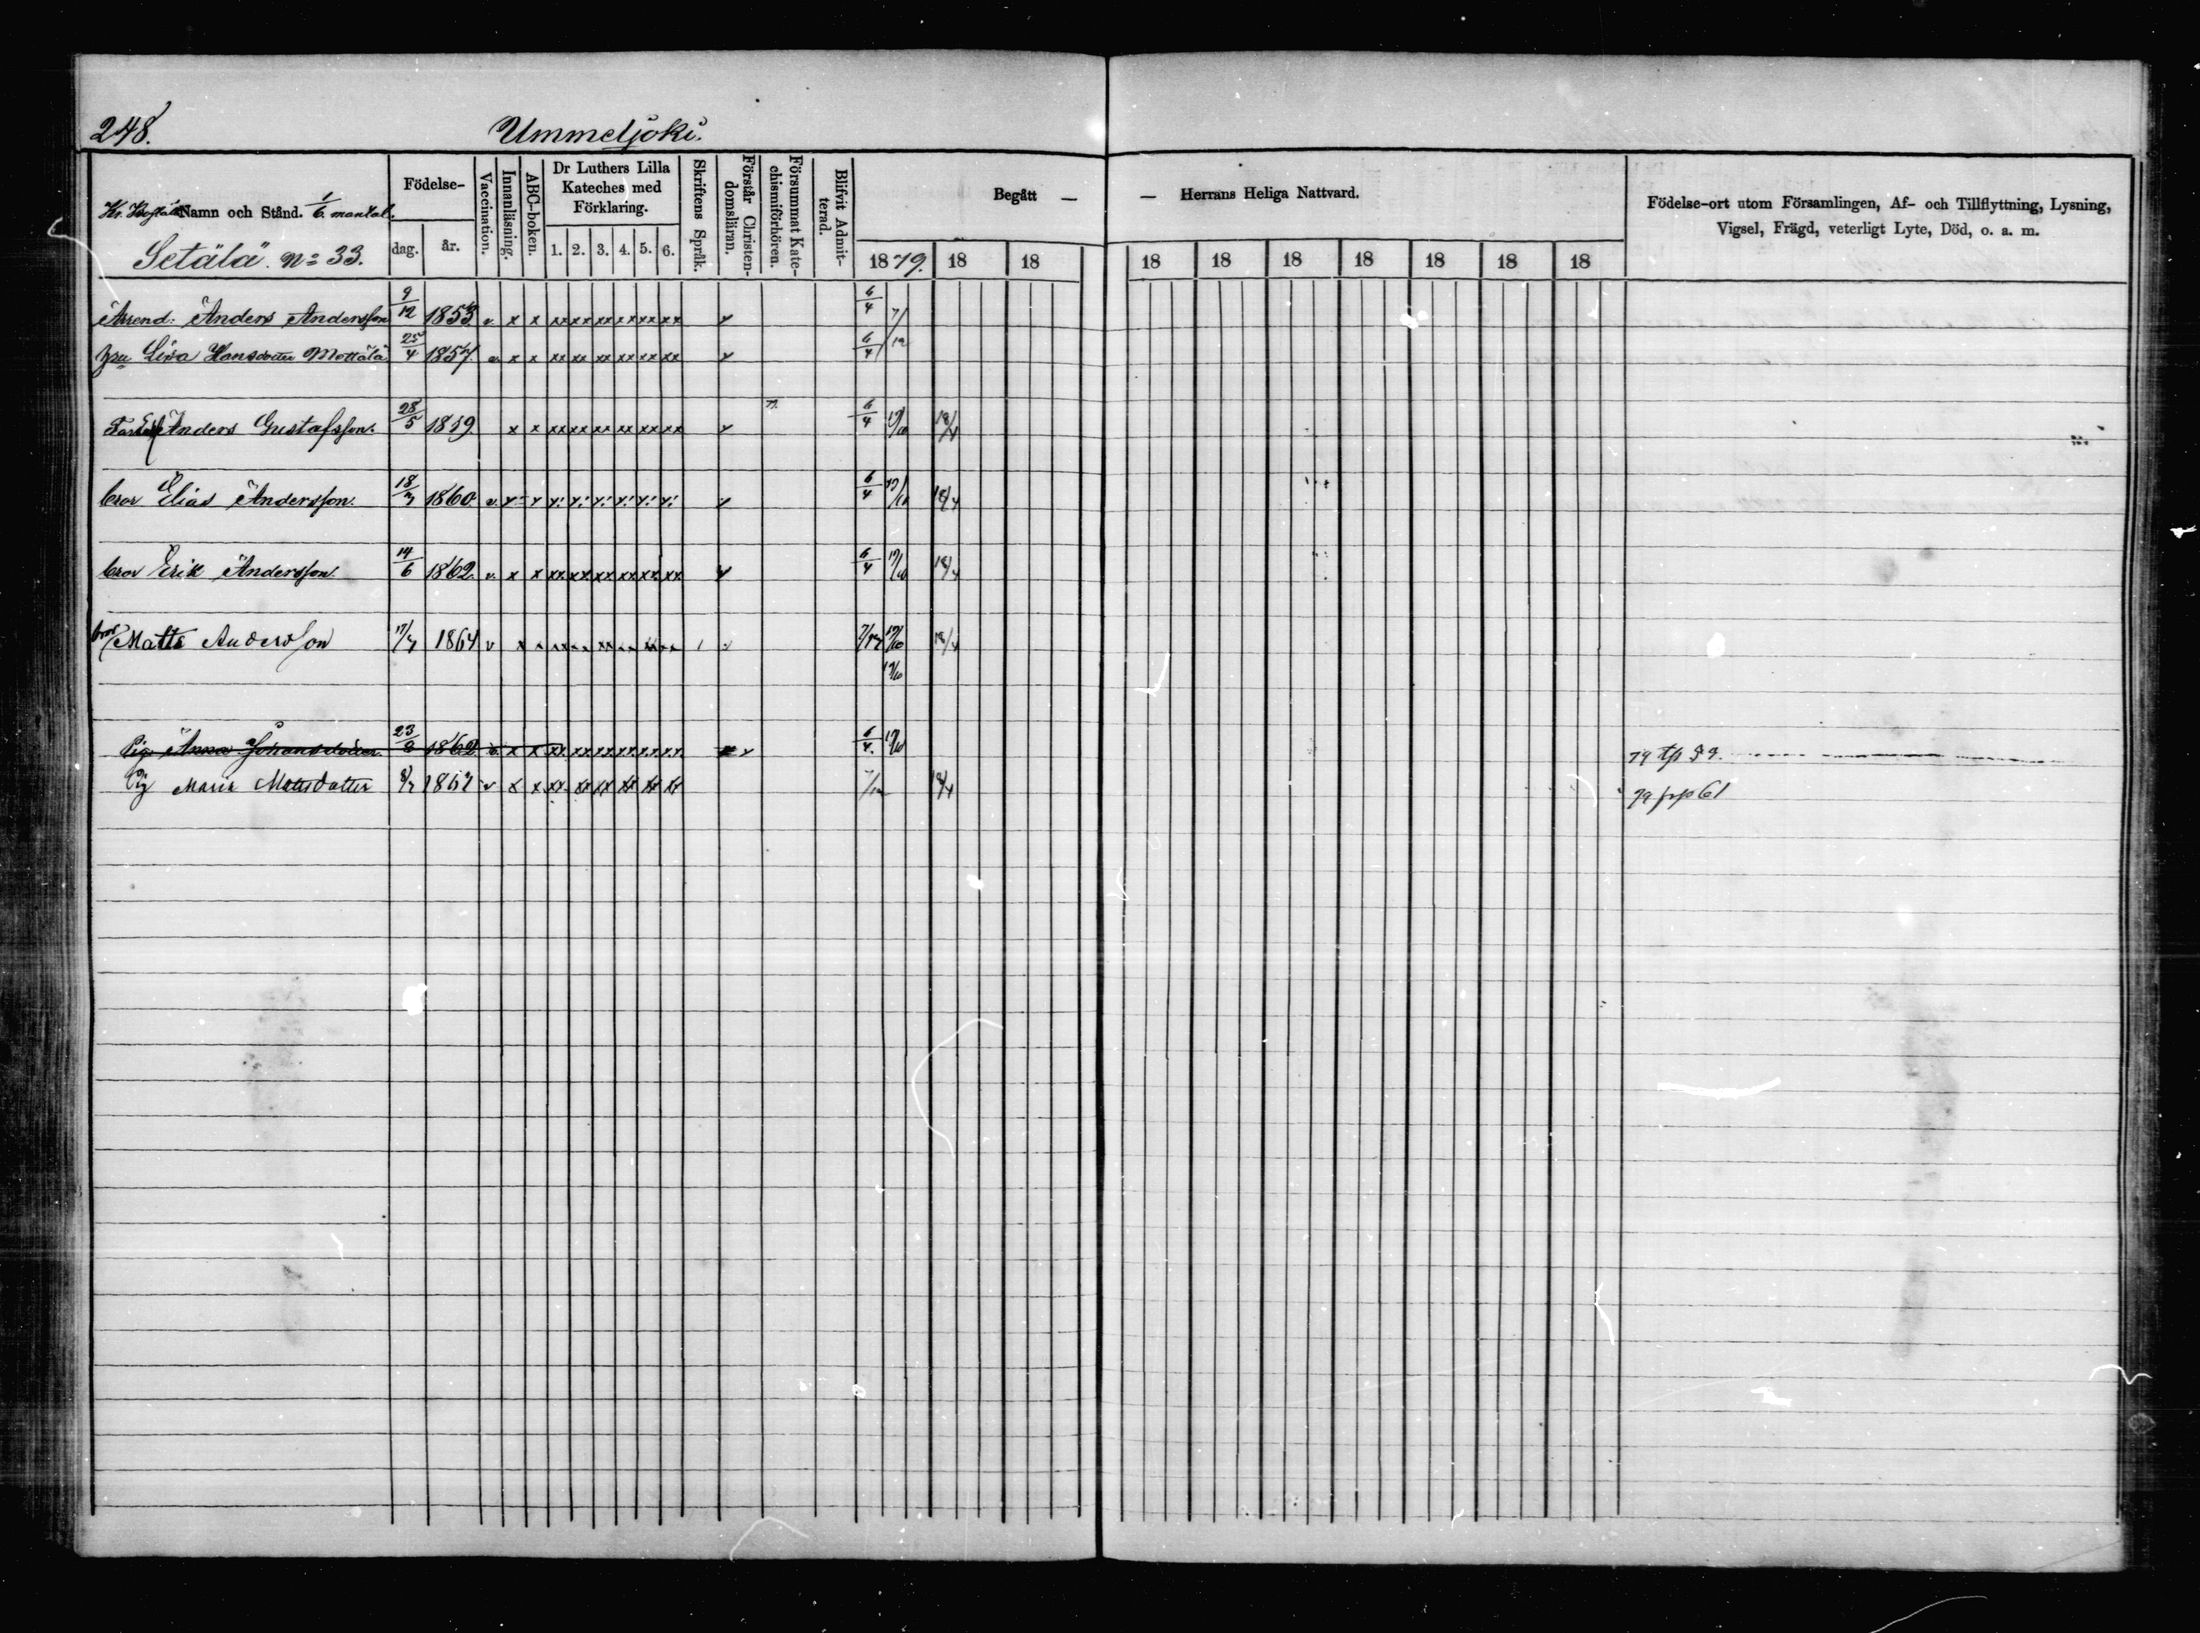 248.
Ummeljoki.
Namn och Stånd. 1/6 mantal.
Setälä. No 33.
Födelse-
dag. år.
Vaccination.
Innanläsning.
ABC-boken.
Dr Luthers Lilla
Kateches med
Förklaring.
1. 2. 3. 4. 5. 6.
Skriftens Språk.
Förstår Christen-
domsläran.
Försummat Kate-
chismiförhören.
Blifvit Admit-
terad.
Begått — — Herrans Heliga Nattvard.
1879. 18 18 18 18 18 18 18 18 18
Födelse-ort utom Församlingen, Af- och Tillflyttning, Lysning,
Vigsel, Frägd, veterligt Lyte, Död, o. a. m.
Arrend: Anders Andersson 9/12 1853 v x x xx xx xx xx xx xx v 6/4 7/12
Lisa Hansdotter Mottälä 25/4 1857 v x x xx xx xx xx xx xx v 6/4
Anders Gustafsson. 28/5 1859 x x xx xx xx xx xx xx v 6/4 19/10 18/4
bror Elias Andersson. 18/7 1860 v. 6/4 19/10 18/4
bror Erik Andersson. 14/6 1862. v. x x xx xx xx xx xx xx v 6/4 19/10 18/4
bror Matts Andersson 17/7 1864 v x x 7/12 19/10 18/4
19/10
Pig. Anna Johansdotter 23/8 1862 v. x x xx xx xx xx xx xx v 6/4. 19/10 79 tp 59.
Pig Maria Mattsdotter 1862 v x x xx xx xx xx xx xx 7/12 18/4 79 frp 61